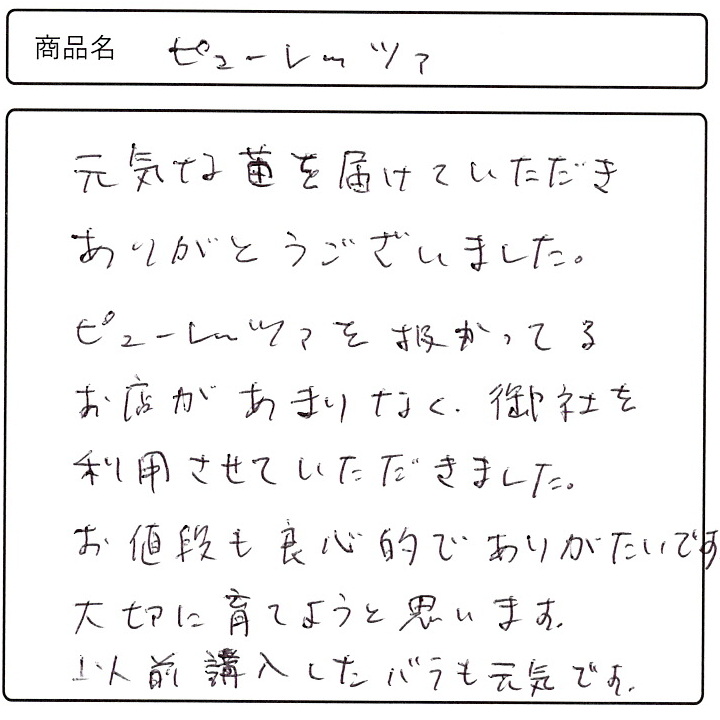 商品名 ピューレッツァ
元気な苗を届けていただき
ありがとうございました。
ピューレッツァを扱かってる
お店があまりなく、御社を
利用させていただきました。
お値段も良心的でありがたいです
大切に育てようと思います。
以前購入したバラも元気です。